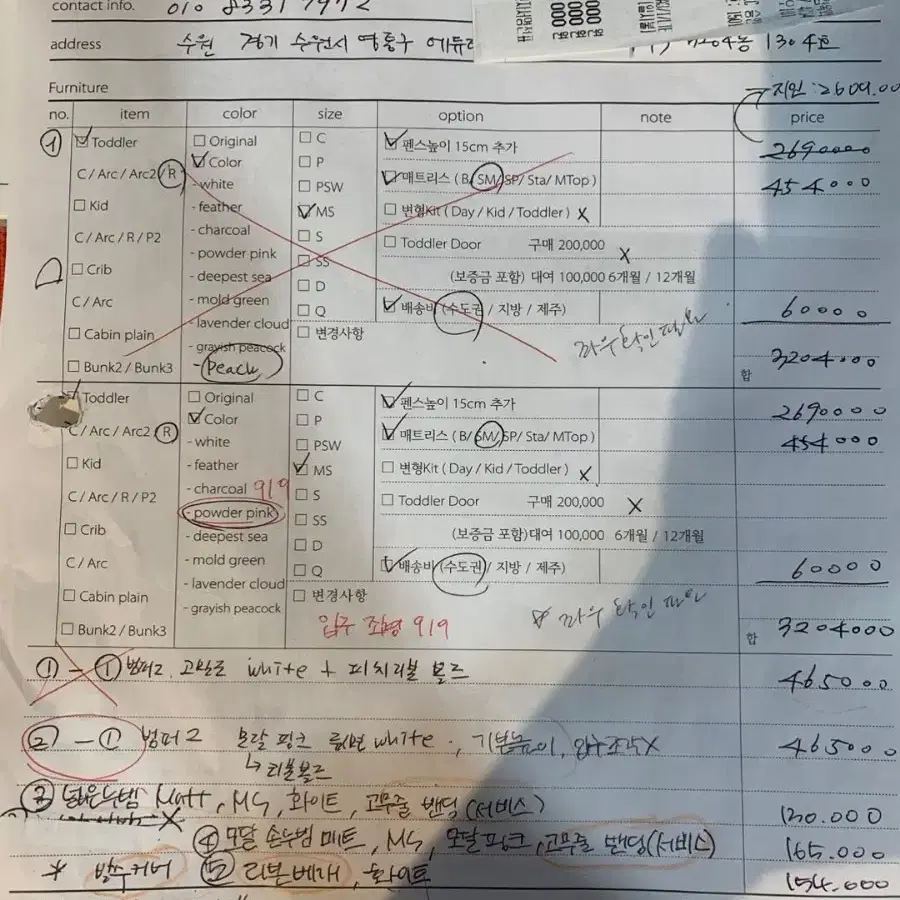 contact info. 010 8331 7972
address 수원 경기 수원시 영통구 에듀 1304호
Furniture
→ 지인 : 2609.00
no. item color size option note price
① Toddler Original C 펜스높이 15cm 추가 2690000
C / Arc / Arc2 / R Color P 매트리스 ( B / SM / SP/ Sta/ MTop ) 454000
- white PSW
Kid - feather MS 변형Kit ( Day / Kid / Toddler ) X
C / Arc / R / P2 - charcoal S Toddler Door 구매 200,000 X
- powder pink SS
Crib - deepest sea D (보증금 포함) 대여 100,000 6개월 / 12개월
C / Arc - mold green Q 배송비 (수도권 / 지방 / 제주) 60000
- lavender cloud 변경사항
Cabin plain - grayish peacock 좌우 확인 필요
Bunk2 / Bunk3 - Peach 합 3204000
Toddler Original C 펜스높이 15cm 추가 2690000
C / Arc / Arc2 / R Color P 매트리스 ( B/ SM/ SP/ Sta/ MTop ) 454000
- white PSW
Kid - feather MS 변형Kit ( Day / Kid / Toddler ) X
C / Arc / R / P2 - charcoal 919 S Toddler Door 구매 200,000 X
- powder pink SS
Crib - deepest sea D (보증금 포함)대여 100,000 6개월 / 12개월
C / Arc - mold green Q 배송비 (수도권 / 지방 / 제주) 60000
- lavender cloud 변경사항
Cabin plain - grayish peacock 좌우 확인 필요
Bunk2 / Bunk3 입구 919 합 3204000
① - ① 범퍼2. white + 피치리본 465000
② - ① 범퍼2 모달 핑크 white . 기본높이, X 465000
↳ 리본
③ Matt, MS, 화이트, 고무줄 밴딩 (서비스) 120.000
X ④ 모달 손누빔 매트, MS, 모달핑크, 고무줄 밴딩(서비스) 165.000
* 방수커버 ⑤ 리본베개, 화이트 154.000